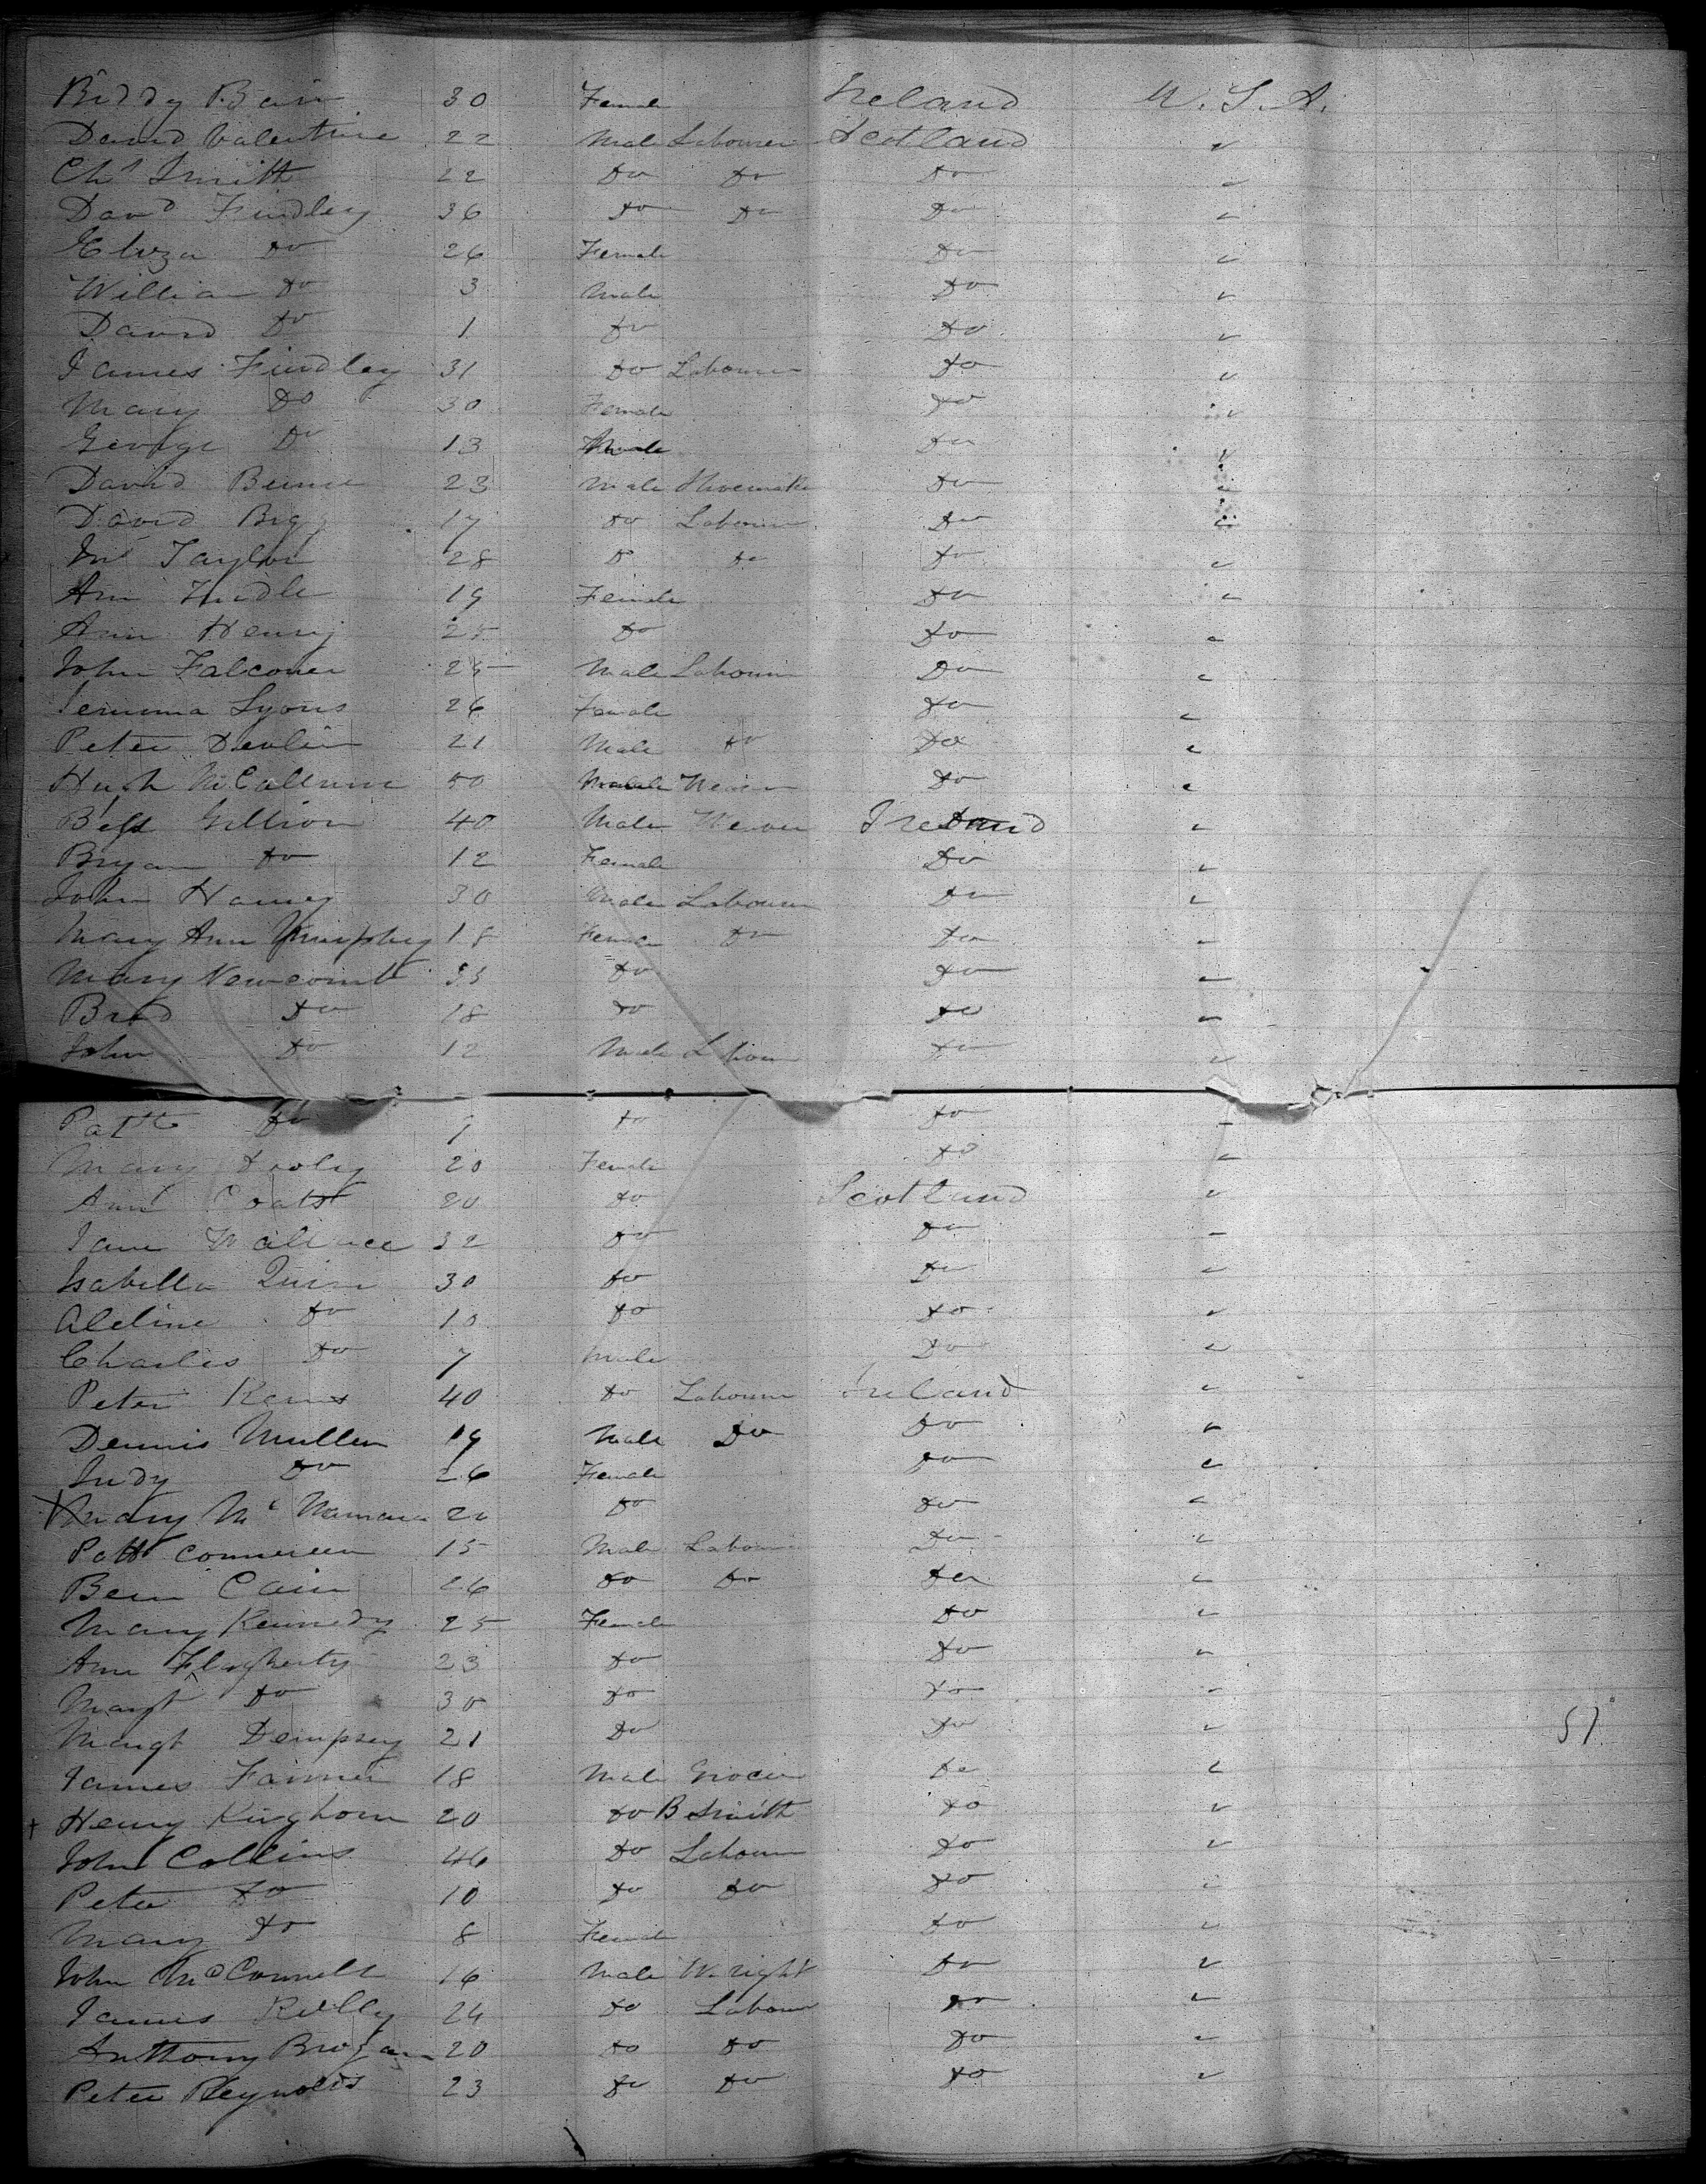 Biddy Bain 30 Female Ireland U.S.A.
David Valentine 22 Male Labourer Scotland "
Chs Smith 22 Do Do Do "
David Findley 36 Do Do Do "
Eliza Do 26 Female Do "
William Do 3 Male Do "
David Do 1 Do Do "
James Findley 31 Do Labourer Do "
Mary Do 30 Female Do "
George Do 13 Male Do "
David 23 Male Shoemaker Do "
David 17 Do Labourer Do "
Taylor 28 Do Do Do "
Ann 19 Female Do "
Ann Henry 25 Do Do "
John Falconer 25 Male Labourer Do "
Jemima Lyons 26 Female Do "
Peter Devlin 21 Male Do Do "
Hugh McCallum 50 Male Do "
Gillion 40 Male Weaver Ireland "
Bryan Do 12 Female Do "
John 30 Male Labourer Do "
Mary Ann Murphy 18 Female Do Do "
Mary Newcomb 35 Do Do "
Brid Do 18 Do Do "
John Do 12 Male Labour Do "
Patt Do 9 Do Do "
Mary Dooly 20 Female Do "
Ann Coats 20 Do Scotland "
Jane Wallace 32 Do Do "
Isabella Quinn 30 Do Do "
Aleline Do 10 Do Do "
Charles Do 7 Male Do "
Peter 40 Do Labourer Ireland "
Dennis Mullen 19 Male Do Do "
Judy Do 26 Female Do "
Mary Mc Namara 20 Do Do "
Patt 15 Male Labourer Do "
Cain 26 Do Do Do "
Mary Kennedy 25 Female Do "
Ann Flagherty 23 Do Do "
Margt Do 30 Do Do "
Margt Dempsey 21 Do Do " 51
James 18 Male Grocer Do "
Henry Kinghorn 20 Do B Smith Do "
John Collins 46 Do Labourer Do "
Peter Do 10 Do Do Do "
Mary Do 8 Female Do "
John McConnell 16 Male W.right Do "
James Reilly 24 Do Labour Do "
Anthony Brogan 20 Do Do Do "
Peter Reynolds 23 Do Do Do "